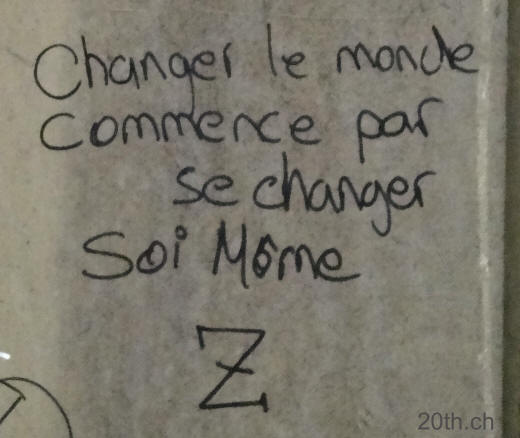 Changer le monde
Commence par
se changer
Soi Même
Z
20th.ch